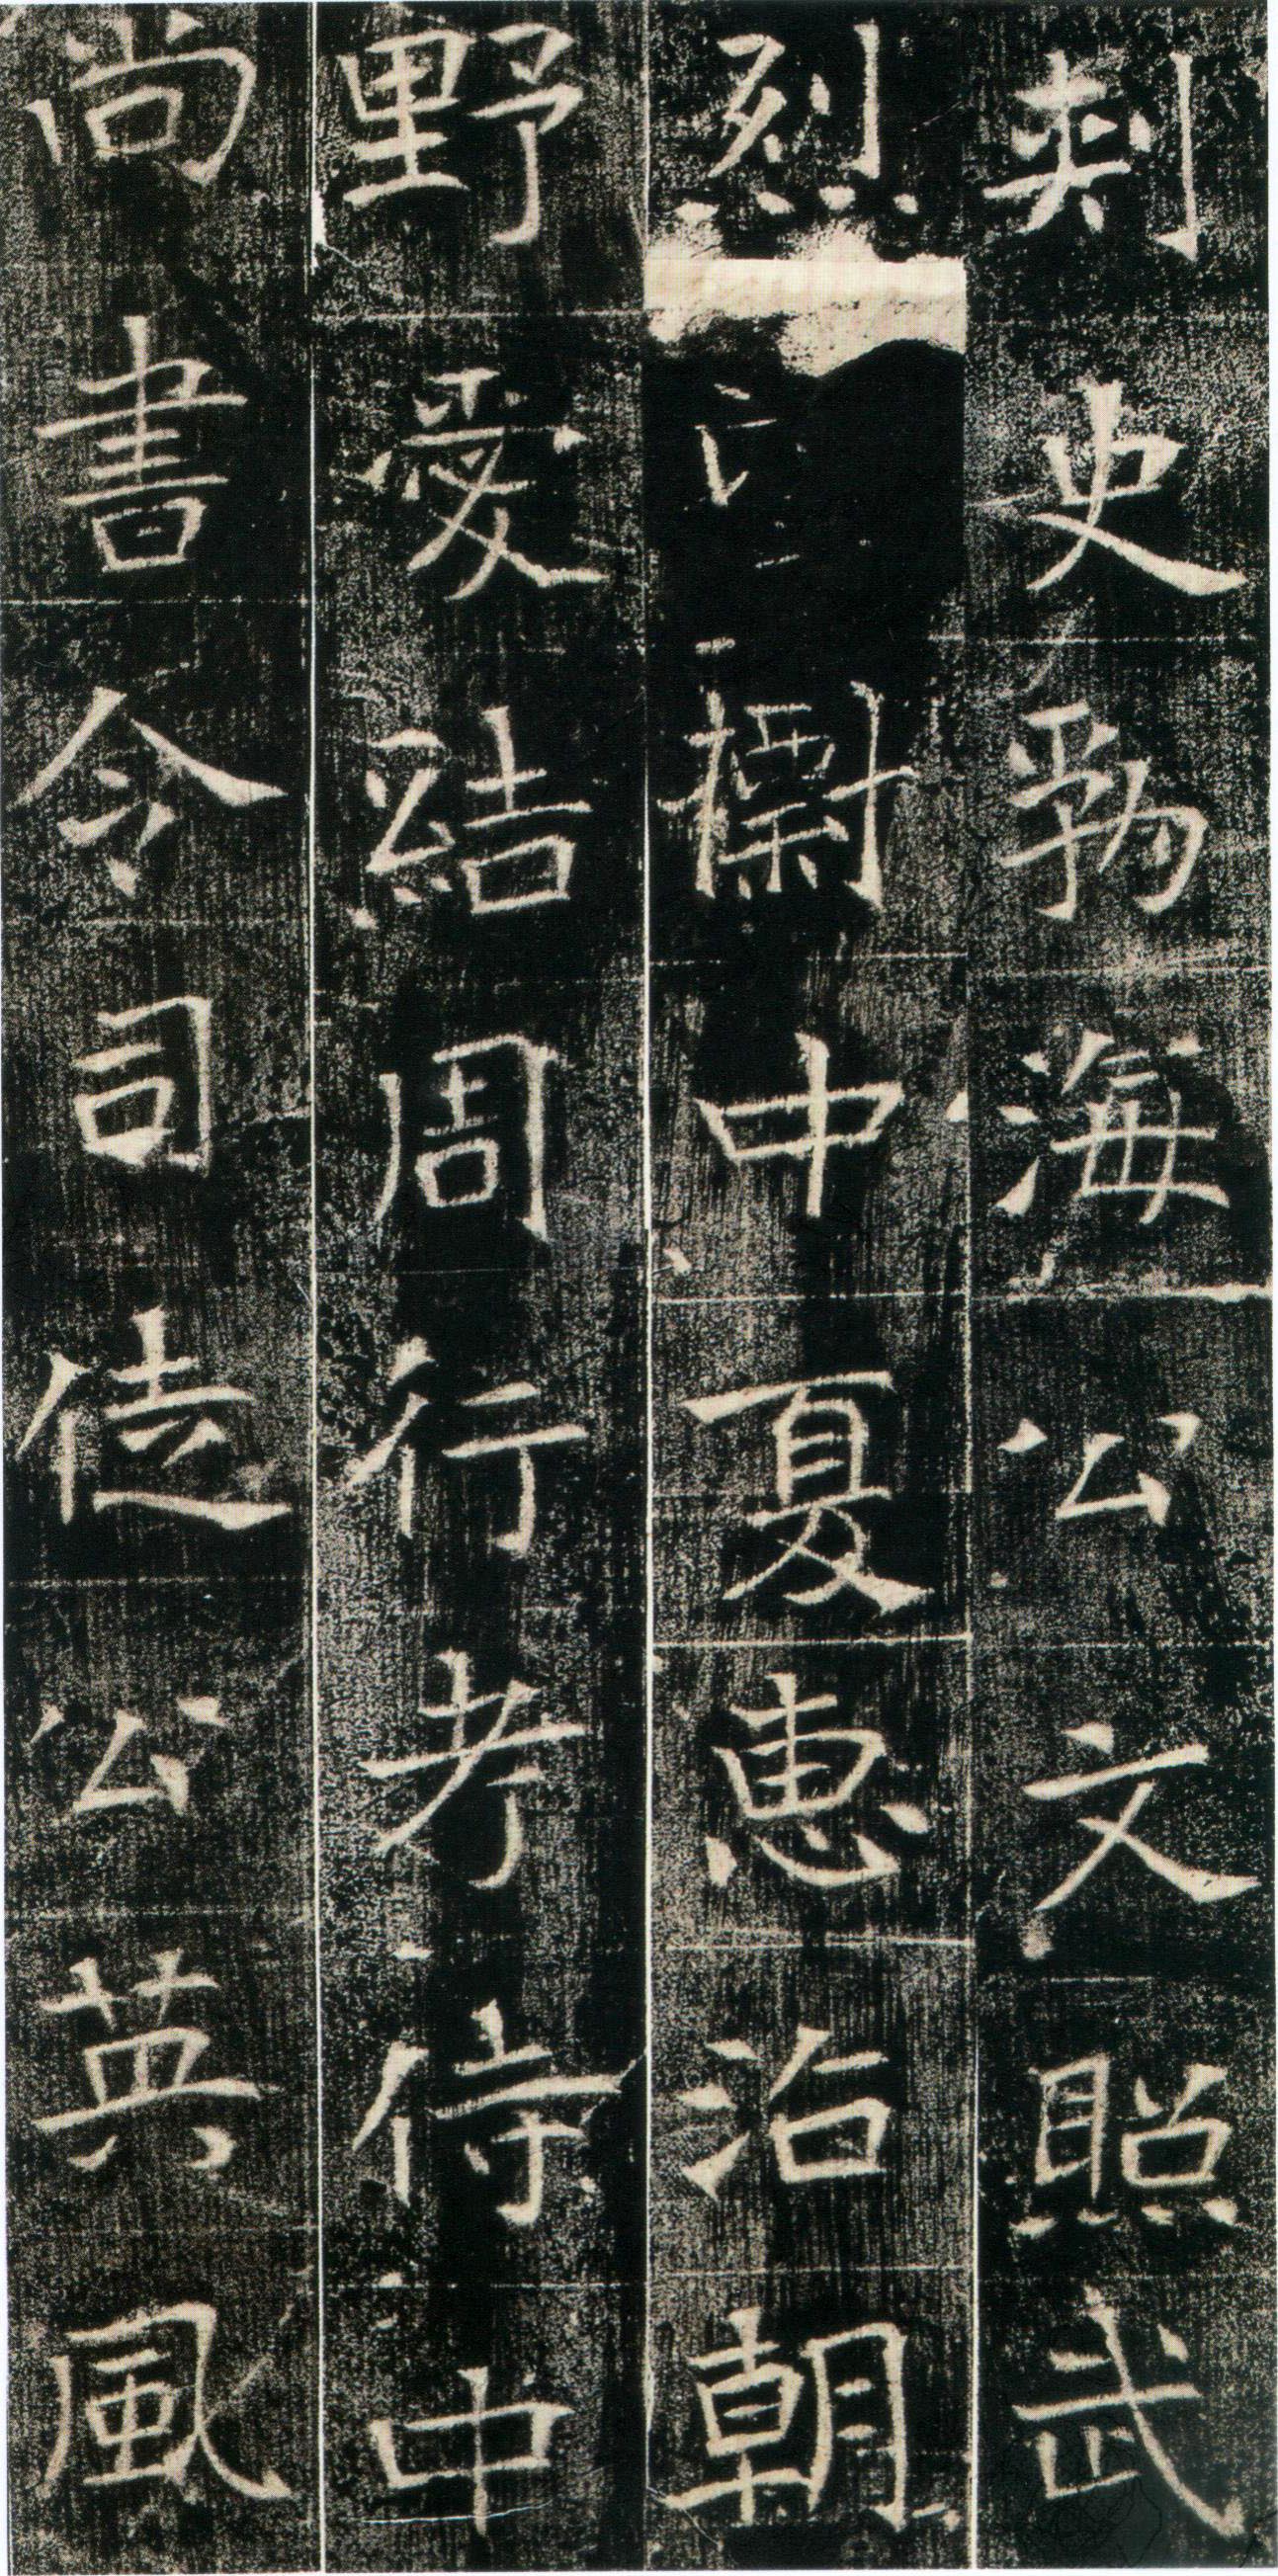 刾史勃海公文照武
烈中夏惠治朝
野愛結周行考侍中
尚書令司徒公英風